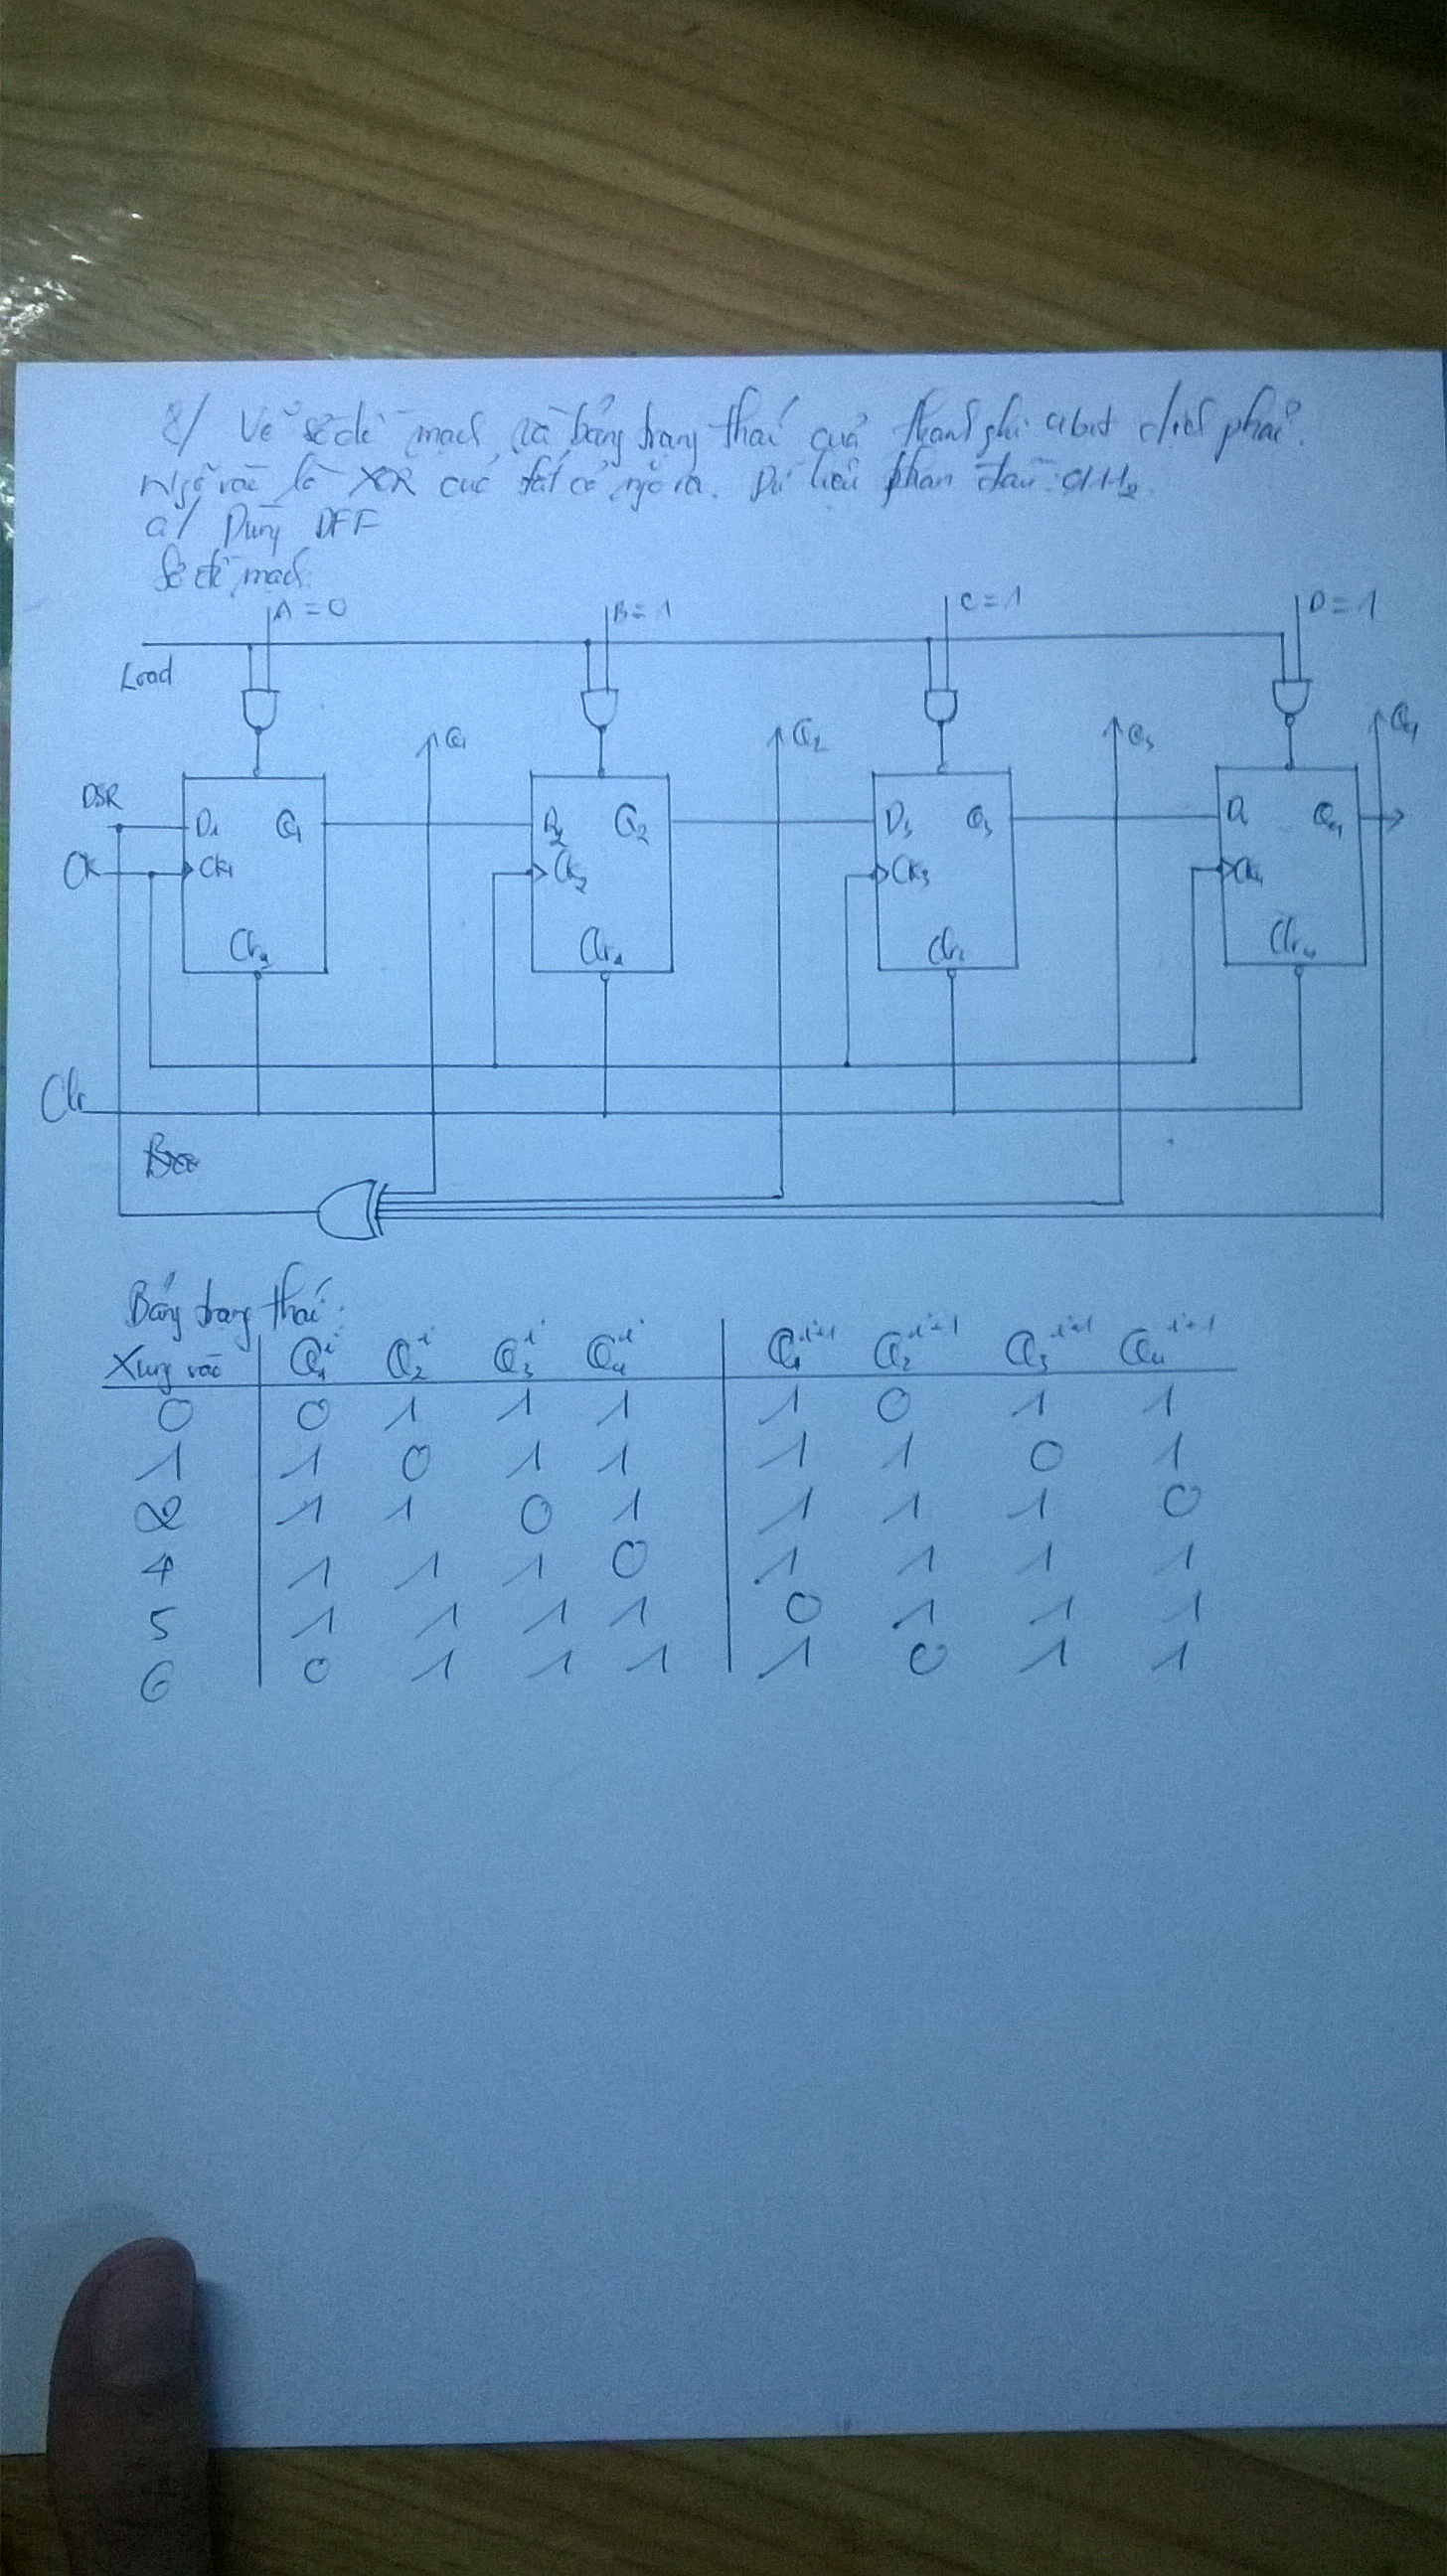 8/ Vẽ sơ đồ mạch và bảng trạng thái của thanh ghi 4bit dịch phải.
Ngõ vào là XOR của tất cả ngõ ra. Dữ liệu phan đầu: 0111₂
a/ Dùng DFF
Sơ đồ mạch:
A = 0 B = 1 C = 1 D = 1
Load
Q₁ Q₂ Q₃ Q₄
DSR D₁ Q₁ D₂ Q₂ D₃ Q₃ D₄ Q₄
CK CK₁ CK₂ CK₃ CK₄
Clr₁ Clr₂ Clr₃ Clr₄
Clr
Bảng trạng thái:
Xung vào Q₁ⁱ Q₂ⁱ Q₃ⁱ Q₄ⁱ Q₁ⁱ⁺¹ Q₂ⁱ⁺¹ Q₃ⁱ⁺¹ Q₄ⁱ⁺¹
0 0 1 1 1 1 0 1 1
1 1 0 1 1 1 1 0 1
2 1 1 0 1 1 1 1 0
4 1 1 1 0 1 1 1 1
5 1 1 1 1 0 1 1 1
6 0 1 1 1 1 0 1 1